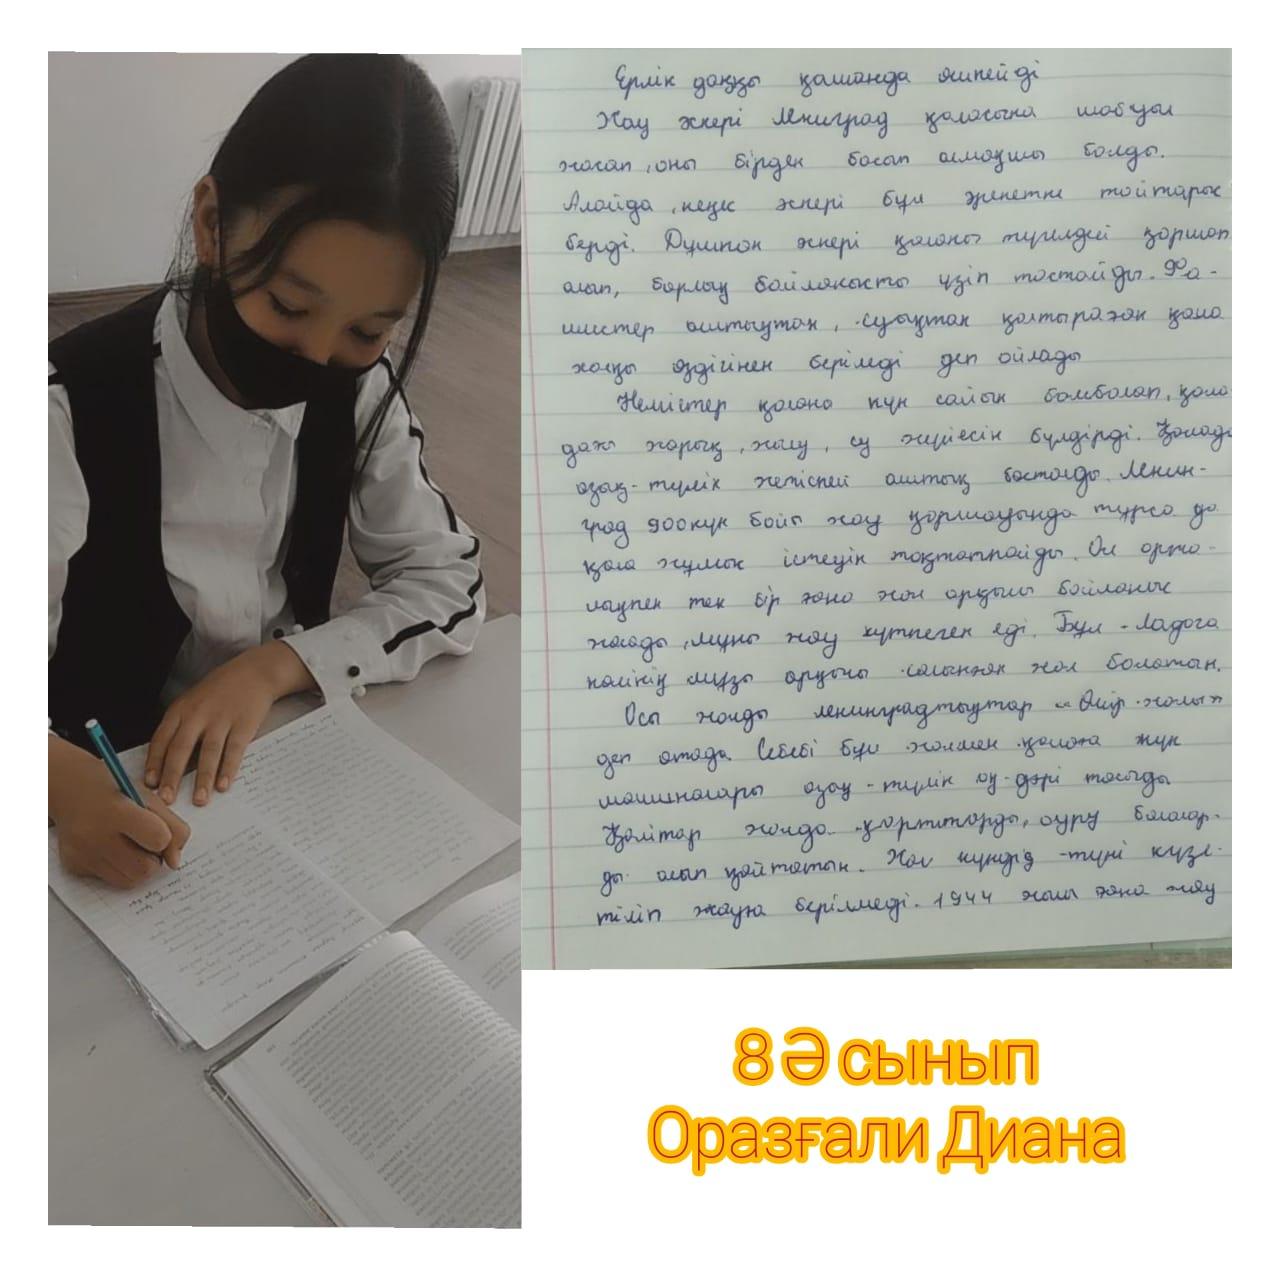 Ерлік даңқы қашанда өшпейді
Жау әскері Ленинград қаласына шабуыл
жасап, оны бірден басып алмақшы болды.
Алайда, кеңес әскері бұл әрекетке тойтарыс
берді. Дұшпан әскері қаланы түгелдей қоршап
алып, барлық байланысты үзіп тастайды. Фа-
шистер аштықтан, суықтан қалтыраған қала
халқы өздігінен беріледі деп ойлады
Немістер қалана күн сайын бомбалап, қала
дағы жарық, жылу, су жүйесін бүлдірді. Қалада
азық-түлік жетіспей аштық басталды. Ленин-
град 900 күн бойы жау қоршауында тұрса да
қала жұмыс істеуін тоқтатпайды. Ол орта-
лықпен тек бір ғана жол арқылы байланыс
жасады, мұны жау күтпеген еді. Бұл - Ладога
көлінің мұзы арқылы салынған жол болатын.
Осы жолды ленинградтықтар «Өмір жолы»
деп атады. Себебі бұл жолмен қалаға жүк
машиналары азық-түлік оқ-дәрі тасыды
Қайтар жолда қарттарды, ауру балалар-
ды алып қайтатын. Жол күндіз-түні күзе-
тіліп жауға берілмеді. 1944 жылы ғана жау
8 Ә сынып
Оразғали Диана